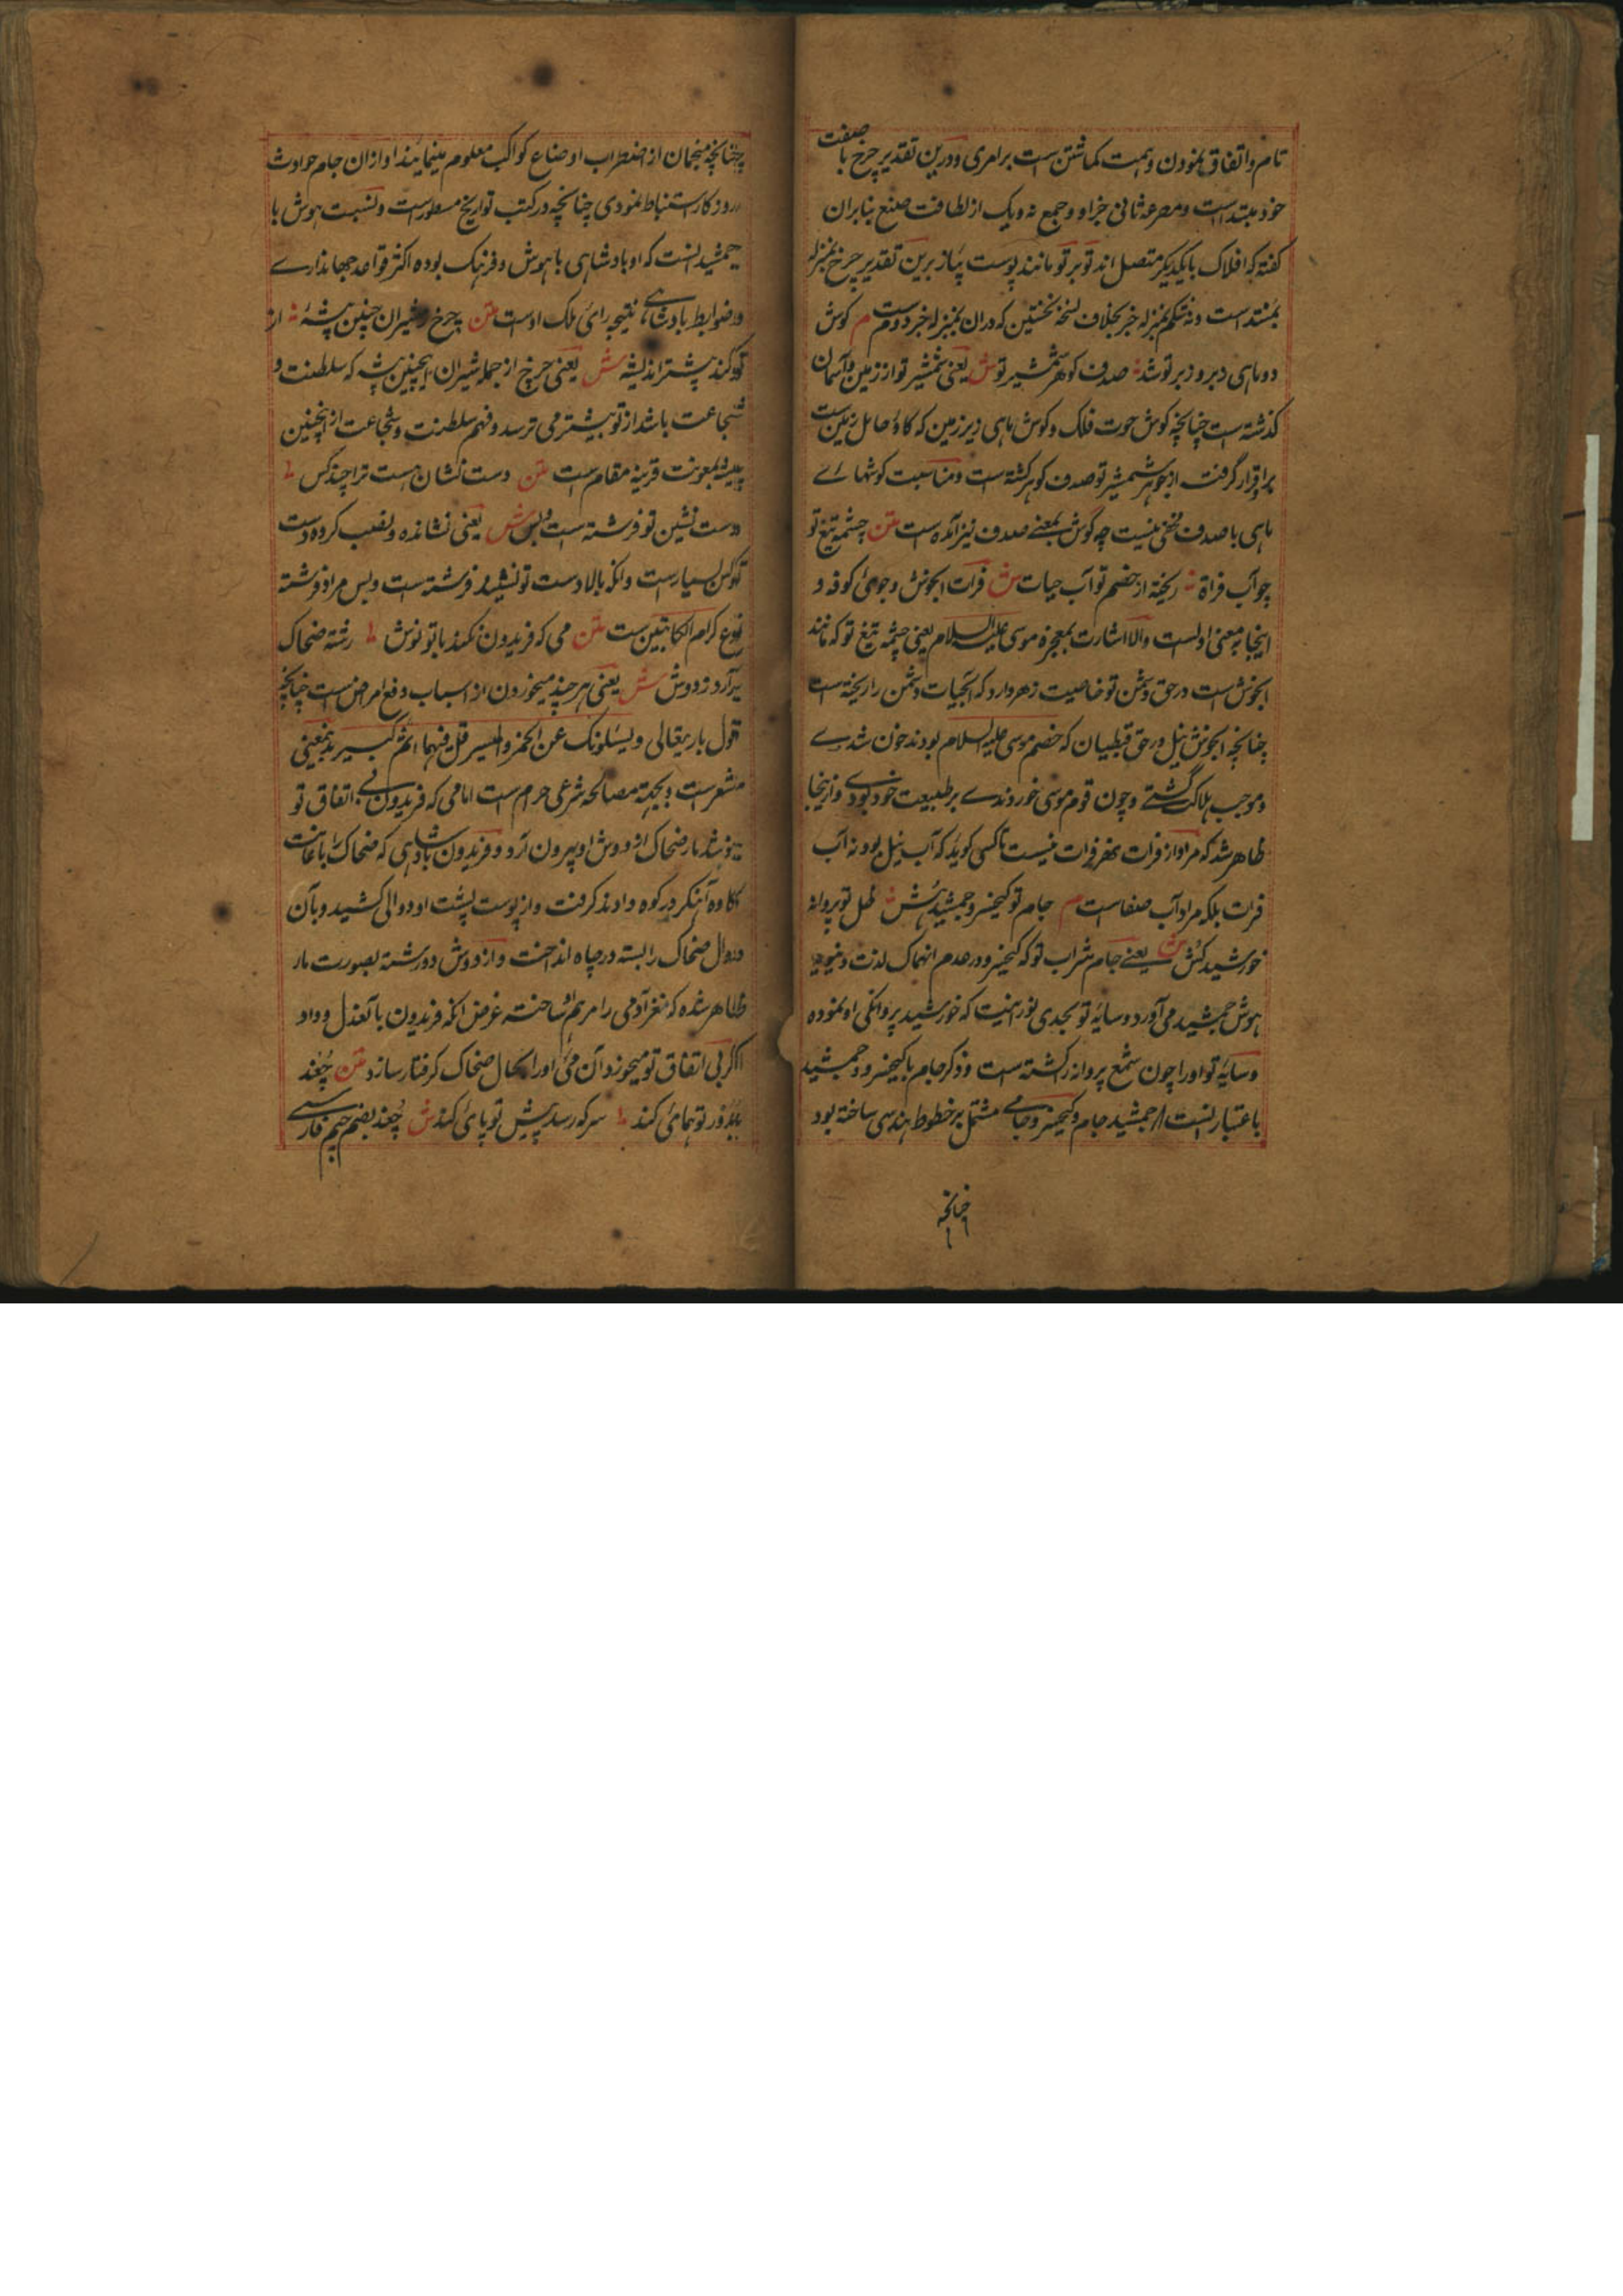 تام و اتفاق نمودن و همت کماشتن است بر امری و درین تقدیر چرخ با صفت
خود مبتداست و مصرعه ثانی خبر او و جمع نه و یک از لطافت صنع بنابران
کفته که افلاک بایکدیکر متصل اند تو بر تو مانند پوست پیاز برین تقدیر چرخ بمنزله
مبتداست و نه شکم بمنزله خبر بخلاف نسخه نخستین که دران بمنزله خبر دوست م کوش
دو ماهی دبر و زبر تو شد صدف کوهر شمشیر تو ش یعنی شمشیر تو از زمین و آسمان
کذشته است چنانچه کوش حوت فلک و کوش ماهی زیر زمین که کاو حامل زمین است
بر اقرار گرفت از جوهر شمشیر تو صدف کوهر کشته است و مناسبت کوشهاے
ماهی با صدف مخفی نیست چه گوش بمعنے صدف نیز آمده است متن چشمه تیغ تو
چو آب فراة ریخته از خصم تو آب حیات ش فرات ابخوش و جوی کوفه و
اینجا بمعنی اولست و الا اشارت بمعجزه موسی علیه السلام یعنی چشمه تیغ تو که مانند
ابخوش است در حق دشمن تو خاصیت زهر دارد که آبحیات دشمن را ریخته است
چنانچه ابخوش نیل در حق قبطیان که خصم موسی علیه السلام بودند خون شدے
و موجب هلاک گشتے و چون قوم موسی خوردندے بر طبیعت خود بودے و ازینجا
ظاهر شد که مراد از فرات نهر فرات نیست تا کسی کوید که آب نیل بود نه آب
فرات بلکه مراد آب صفاست م جام تو کیخسرو جمشید هش ظل تو پروانه
خورشید کش ش یعنے جام شراب تو که کیخسرو در عدم انهماک لذت دنیویه
هوش جمشید می آورد و سایه تو بحدی نورانیت که خورشید پروانکی او نموده
و سایه تو او را چون شمع پروانه کشته است و ذکر جام با کیخسرو و جمشید
باعتبار نسبت از جمشید جام و کیخسرو جامے مشتمل بر خطوط هندسی ساخته بود
چنانچه
چنانچه منجمان از اضطراب اوضاع کواکب معلوم مینمایند او ازان جام حوادث
روزکار استنباط نمودی چنانچه در کتب تواریخ مسطور است و نسبت هوش با
جمشید انست که او بادشاهی با هوش و فرهنک بوده اکثر قواعد جهانداے
و ضوابط بادشاهے نتیجه رائ ملک اوست متن چرخ و شیران چنین بیشه از
تو کند بیشتر اندیشه ش یعنی چرخ از جمله شیران اینچنین بیشه که سلطنت و
شجاعت باشد از تو بیشتر می ترسد و فهم سلطنت و شجاعت از اینچنین
بیشه بمعونت قرینه مقام است متن دست نشان هست ترا چند کس
دست نشین تو فرشته است و بس ش یعنی نشانده و نصب کرده دست
تو کس بسیار است و انکه بالا دست تو نشیند فرشته است و بس مراد فرشته
نوع کرام الکاتبین ست متن می که فریدون نکند با تو نوش رشته ضحاک
برآرد ز دوش ش یعنی هر چند میخوردن از اسباب دفع امراض است چنانچه
قول باریتعالی و یسئلونک عن الخمر و المیسر قل فیهما اثم کبیر بدینمعنی
مشعر است و بجهة مصالحه شرعی حرام است اما می که فریدون بے اتفاق تو
بنوشد مار ضحاک از دوش او بیرون آرد و فریدون بادشاهی که ضحاک را باعانت
کاوه آهنکر در کوه دماوند کرفت و از پوست پشت او دوالی کشید و بآن
دوال ضحاک را بسته در چاه انداخت و از دوش دو رشته بصورت مار
ظاهر شده که مغز آدمی را مرهم او ساخته غرض انکه فریدون با آنعدل و داد
اکر بی اتفاق تو میخورد آن می او را بحال ضحاک کرفتار سازد متن چغد
بدور تو همائ کند سر که رسد پیش تو پای کند ش چغد بضم جیم فارسے